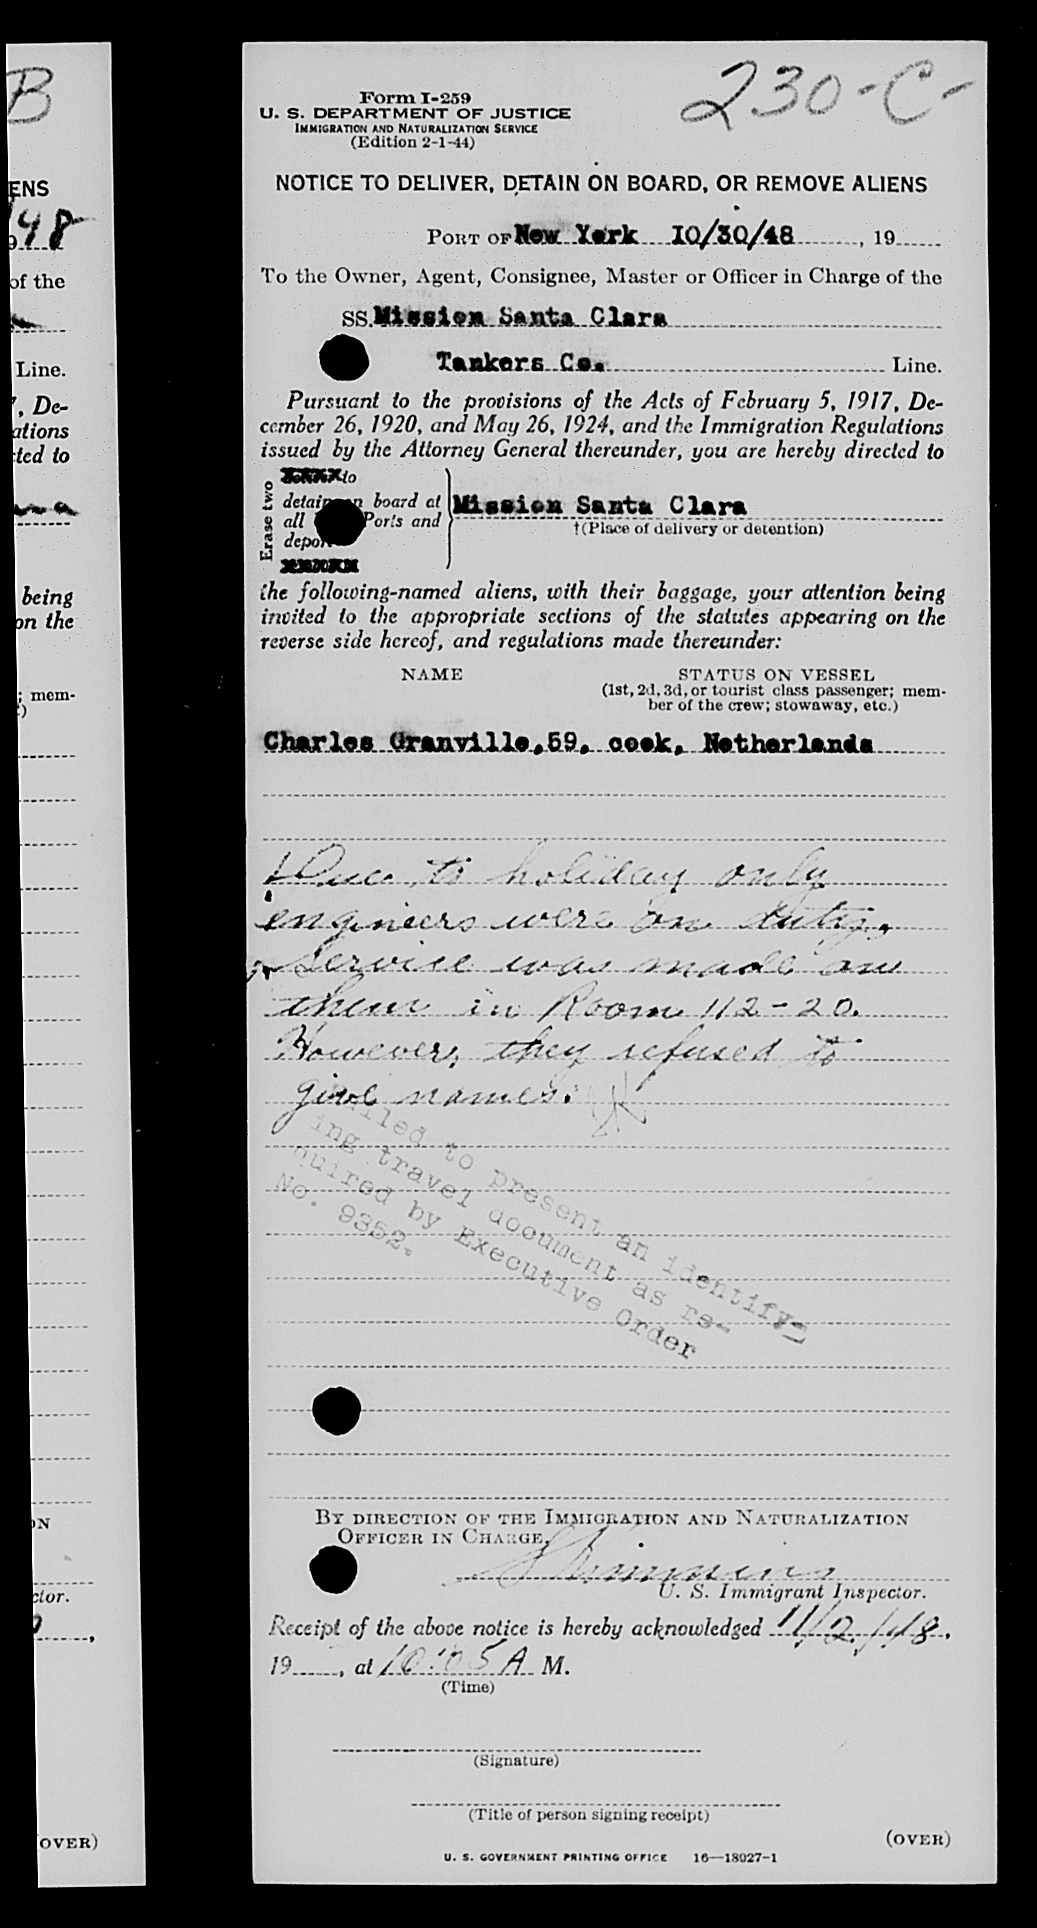 B
ENS
948
of the
Line.
', De-
ations
cted to
being
on the
; mem-
ON
ctor.
(OVER)
230-C-
Form I-259
U. S. DEPARTMENT OF JUSTICE
IMMIGRATION AND NATURALIZATION SERVICE
(Edition 2-1-44)
NOTICE TO DELIVER, DETAIN ON BOARD, OR REMOVE ALIENS
PORT OF New York 10/30/48, 19
To the Owner, Agent, Consignee, Master or Officer in Charge of the
SS. Mission Santa Clara
Tankers Co. Line.
Pursuant to the provisions of the Acts of February 5, 1917, De-
cember 26, 1920, and May 26, 1924, and the Immigration Regulations
issued by the Attorney General thereunder, you are hereby directed to
Erase two
to
detain on board at
all Ports and
deport
Mission Santa Clara
†(Place of delivery or detention)
the following-named aliens, with their baggage, your attention being
invited to the appropriate sections of the statutes appearing on the
reverse side hereof, and regulations made thereunder:
NAME
STATUS ON VESSEL
(1st, 2d, 3d, or tourist class passenger; mem-
ber of the crew; stowaway, etc.)
Charles Granville, 59, cook, Netherlands
Due to holiday only
engineers were on duty,
service was made on
them in Room 112-20.
However, they refused to
give names.
Failed to present an identify-
ing travel document as re-
quired by Executive Order
No. 9352.
BY DIRECTION OF THE IMMIGRATION AND NATURALIZATION
OFFICER IN CHARGE,
U. S. Immigrant Inspector.
Receipt of the above notice is hereby acknowledged 11/2/48,
19, at 10:05 A M.
(Time)
(Signature)
(Title of person signing receipt)
(OVER)
U. S. GOVERNMENT PRINTING OFFICE 16—18027-1